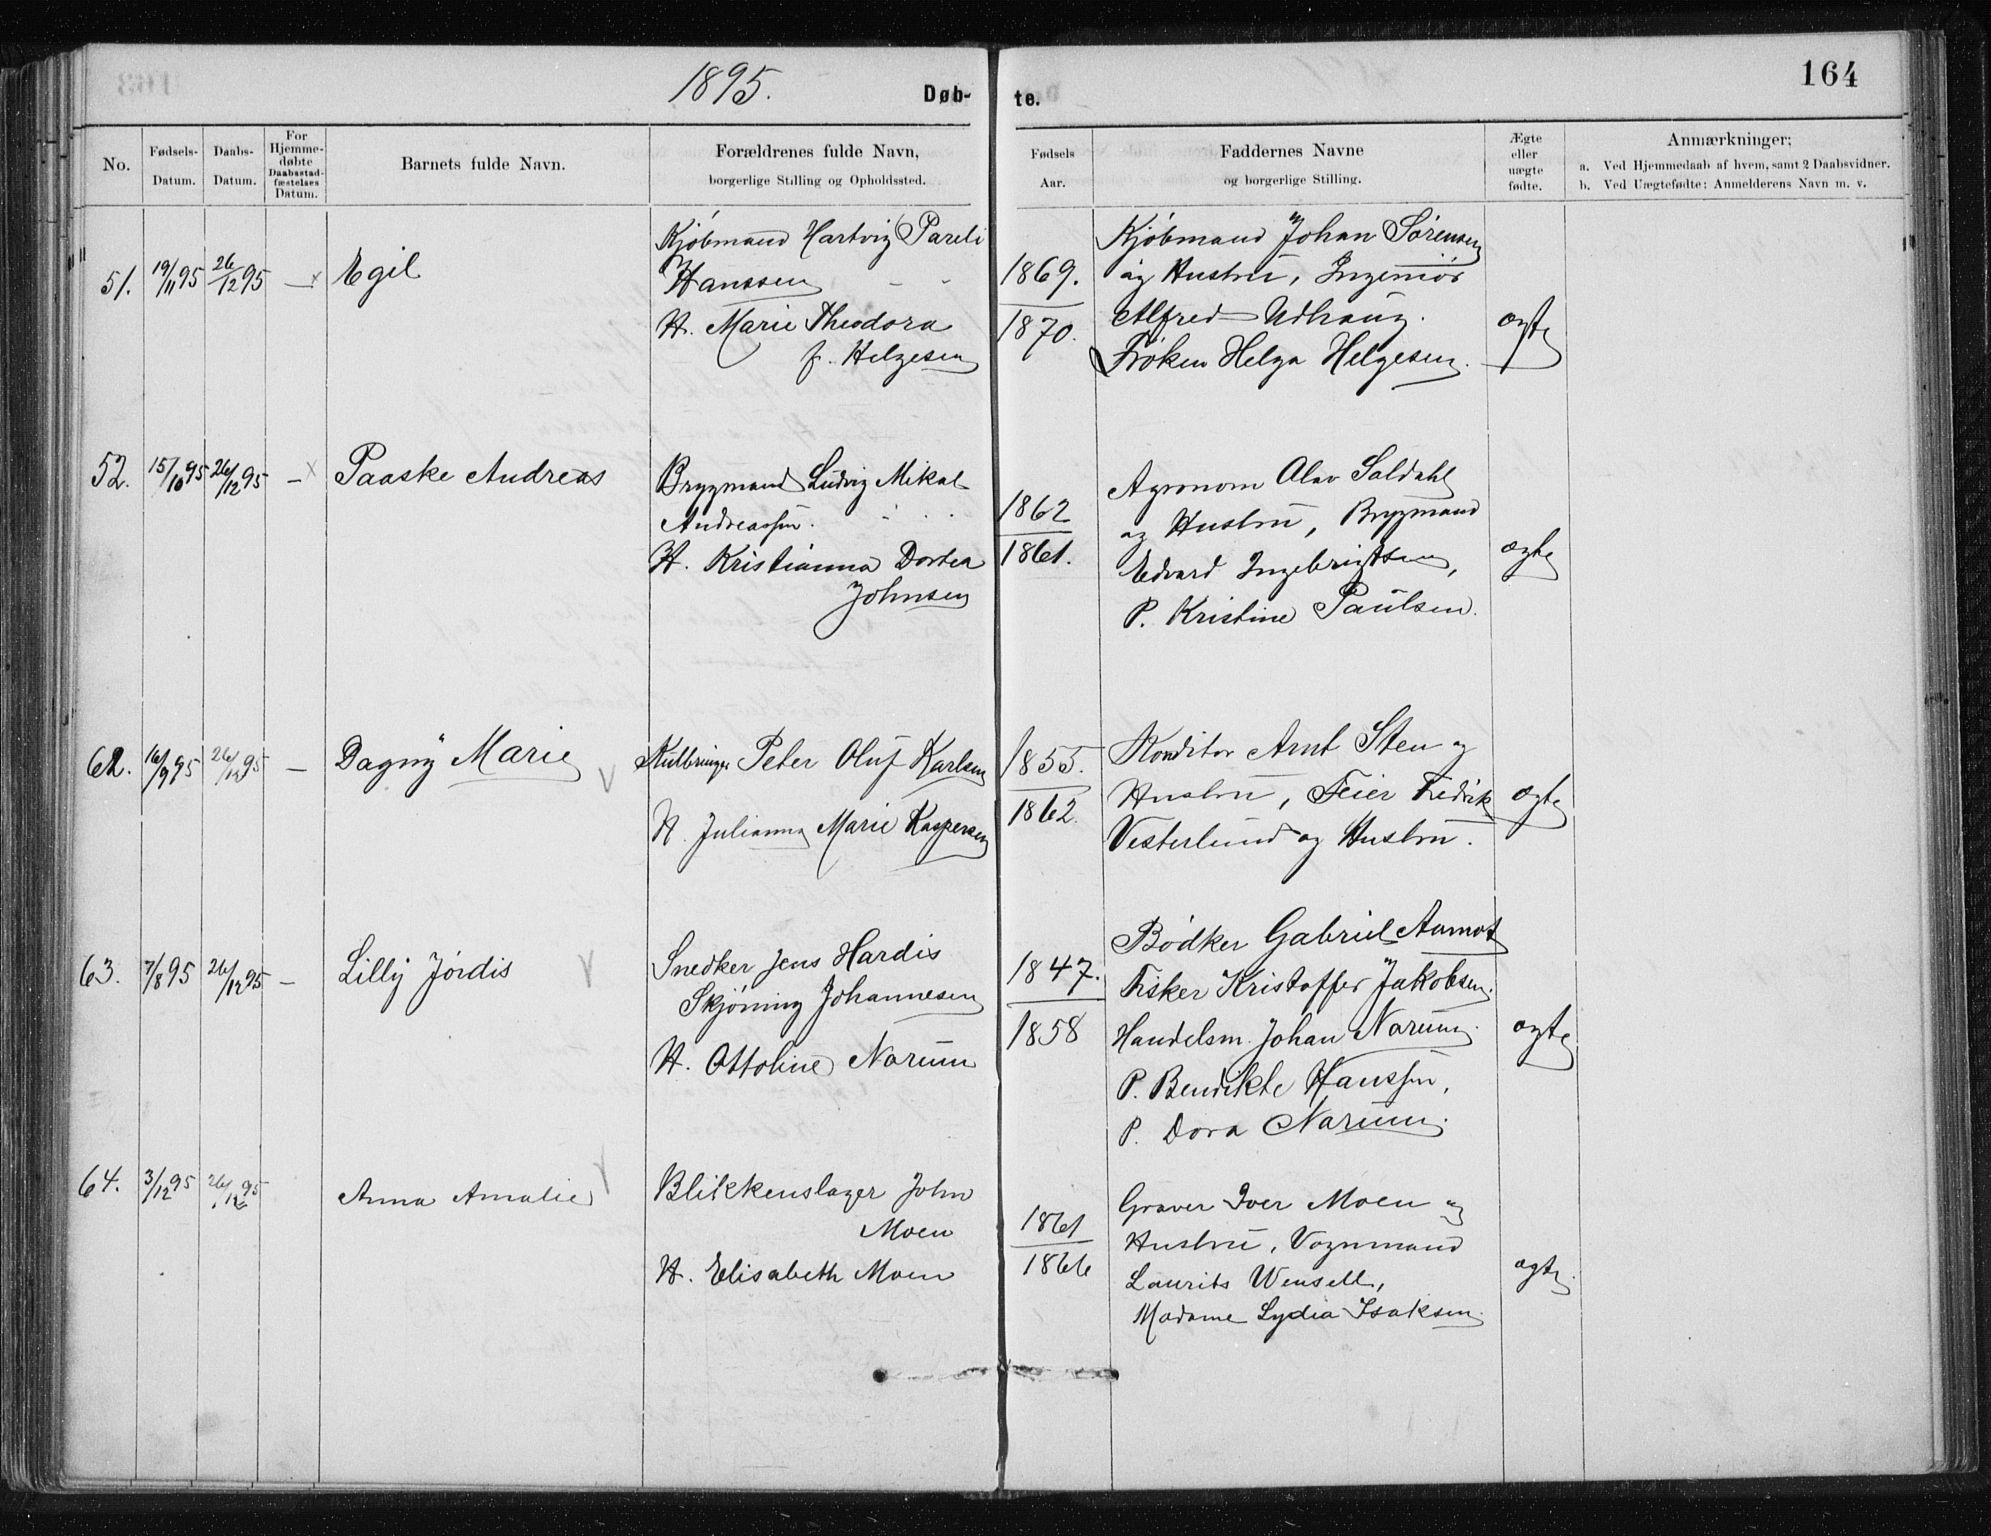 1895.
Døb-
te.
164
No.
Fødsels-
Datum.
Daabs-
Datum.
For
Hjemme-
døbte
Daabsstad-
fæstelses
Datum.
Barnets fulde Navn.
Forældrenes fulde Navn,
borgerlige Stilling og Opholdssted.
Fødsels
Aar.
Faddernes Navne
og borgerlige Stilling.
Ægte
eller
uægte
fødte.
Anmærkninger;
a. Ved Hjemmedaab af hvem, samt 2 Daabsvidner.
b. Ved Uægtefødte: Anmelderens Navn m. v.
51.
19/11 95
26/12 95
—
Egil
Kjøbmand Hartvig Pareli
Hanssen
H. Marie Theodora
f. Helgesen
1869.
1870.
Kjøbmand Johan Sørensen
og Hustru, Ingeniør
Alfred Udhaug.
Frøken Helga Helgesen.
ægte
52.
15/10 95
26/12 95
—
Paaske Andreas
Brygmand Ludvig Mikal
Andreassen.
H. Kristianna Dortea
Johnsen
1862
1861.
Agronom Olav Soldahl
og Hustru, Brygmand
Edvard Ingebrigtsen,
P. Kristine Paulsen.
ægte
62.
16/9 95
26/12 95
—
Dagny Marie
Peter Oluf Karlsen
H. Julianna Marie Kaspersen
1855.
1862.
Konditor Arnt Sten og
Hustru, Feier Fredrik
Vesterlund og Hustru.
ægte
63.
7/8 95
26/12 95
—
Lilly Jørdis
Snedker Jens Hardis
Skjøning Johannesen
H. Ottoline Norum
1847.
1858
Bødker Gabriel Aamot
Fisker Kristoffer Jakobsen.
Handelsm. Johan Norum.
P. Bendikte Hanssen,
P. Dora Narum.
ægte
64.
3/12 95
26/12 95
Anna Amalie
Blikkenslager John
Moen
H. Elisabeth Moen
1861
1866
Graver Iver Moen og
Hustru, Vognmand
Laurits Wensell,
Madame Lydia Isaksen.
ægte